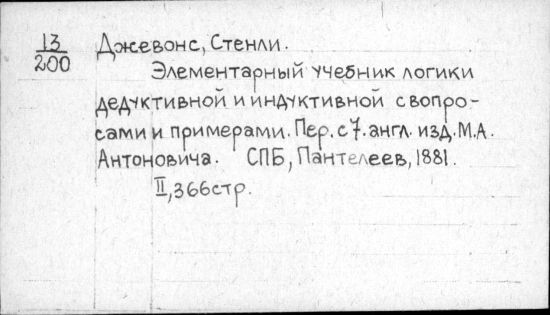 13/200 Джевонс, Стенли.
Элементарный учебник логики
дедуктивной и индуктивной с вопро-
сами и примерами. Пер. с 7. англ. изд. М.А.
Антоновича. СПБ, Пантелеев, 1881.
II, 366 стр.